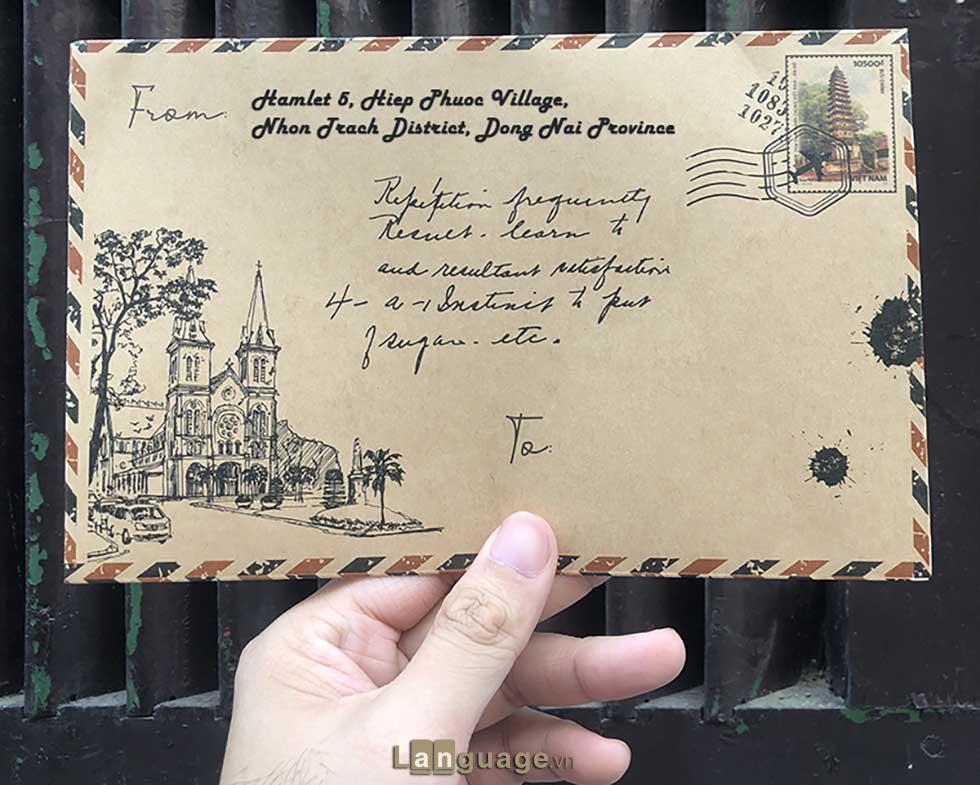 From:
Hamlet 5, Hiep Phuoc Village,
Nhon Trach District, Dong Nai Province
10500đ
1085
1027
VIET NAM
Repetition frequently
Result - learn to
and resultant satisfaction
4 - a - Instinct to put
sugar. etc.
To:
Language.vn